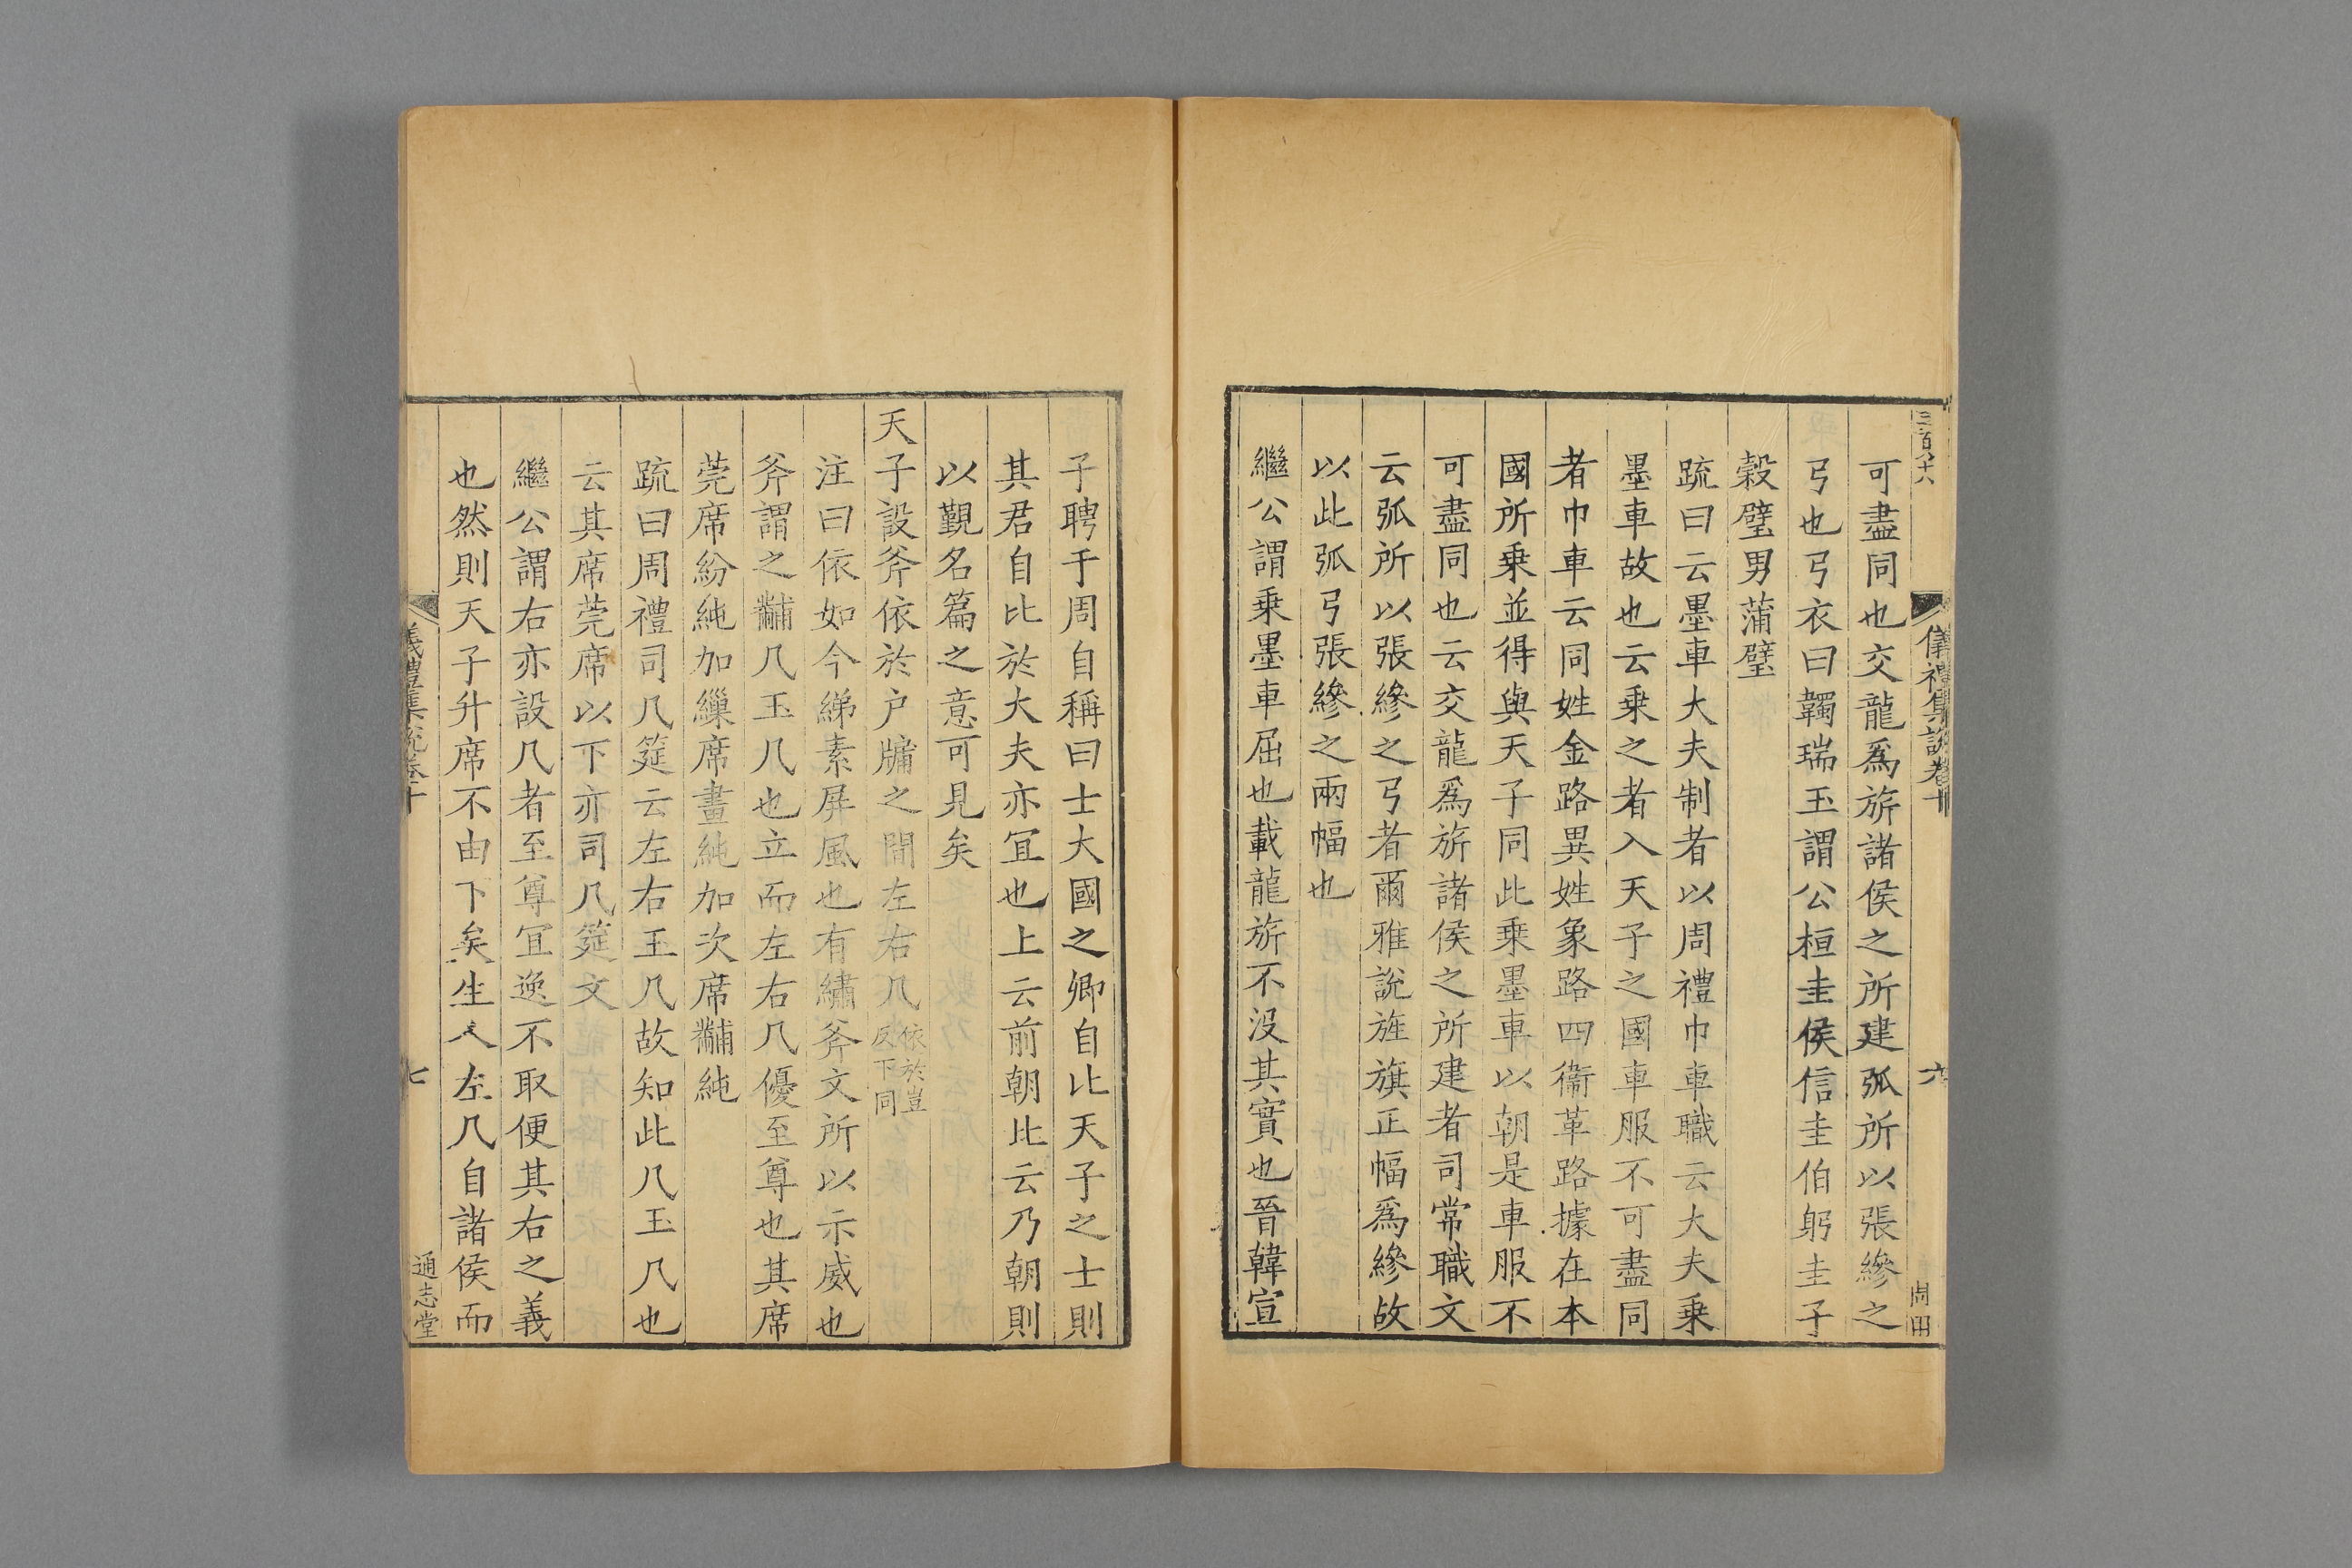 三百十六
儀禮集說卷十
六
可盡同也交龍爲旂諸侯之所建弧所以張縿之
弓也弓衣曰韣瑞玉謂公桓圭侯信圭伯躬圭子
穀璧男蒲璧
疏曰云墨車大夫制者以周禮巾車職云大夫乗
墨車故也云乗之者入天子之國車服不可盡同
者巾車云同姓金路異姓象路四衞革路據在本
國所乗並得與天子同此乗墨車以朝是車服不
可盡同也云交龍爲旂諸侯之所建者司常職文
云弧所以張縿之弓者爾雅說旌旗正幅爲縿故
以此弧弓張縿之兩幅也
繼公謂乗墨車屈也載龍旂不没其實也晉韓宣
子聘于周自稱曰士大國之卿自比天子之士則
其君自比於大夫亦冝也上云前朝比云乃朝則
以覲名篇之意可見矣
天子設斧依於户牖之間左右几依於豈反下同
注曰依如今綈素屏風也有繡斧文所以示威也
斧謂之黼几玉几也立而左右几優至尊也其席
莞席紛純加繅席畫純加次席黼純
疏曰周禮司几筵云左右玉几故知此几玉几也
云其席莞席以下亦司几筵文
繼公謂右亦設几者至尊冝逸不取便其右之義
也然則天子升席不由下矣生人左几自諸侯而
儀禮集說卷十
七
通志堂